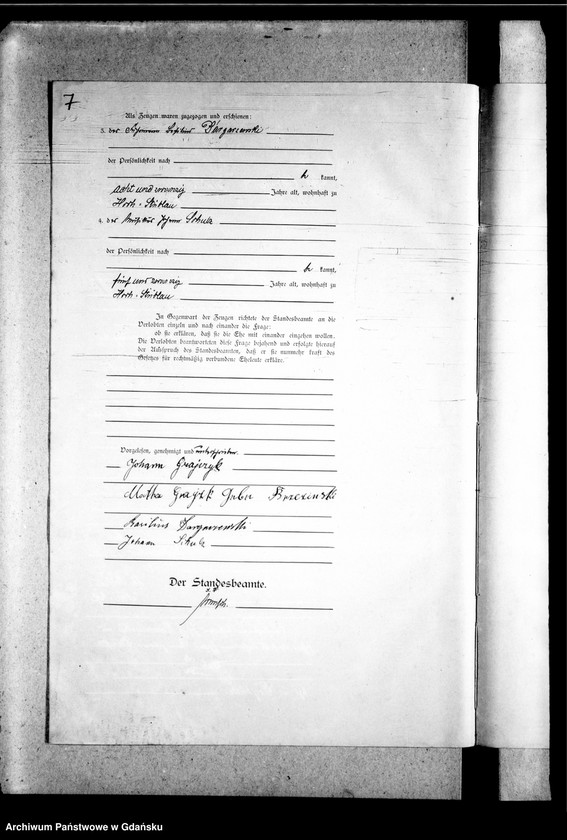 7
Als Zeugen waren zugezogen und erschienen:
3. der
der Persönlichkeit nach
kannt,
acht und zwanzig Jahre alt, wohnhaft zu
Hoch-Stüblau
4. der Johann Schulz
der Persönlichkeit nach
kannt,
fünf und zwanzig Jahre alt, wohnhaft zu
Hoch-Stüblau
In Gegenwart der Zeugen richtete der Standesbeamte an die
Verlobten einzeln und nach einander die Frage:
ob sie erklären, daß sie die Ehe mit einander eingehen wollen.
Die Verlobten beantworteten diese Frage bejahend und erfolgte hierauf
der Ausspruch des Standesbeamten, daß er sie nunmehr kraft des
Gesetzes für rechtmäßig verbundene Eheleute erkläre.
Vorgelesen, genehmigt und unterschrieben.
Johann Grajczyk
Brzezinski
Johann Schulz
Der Standesbeamte.
Archiwum Państwowe w Gdańsku